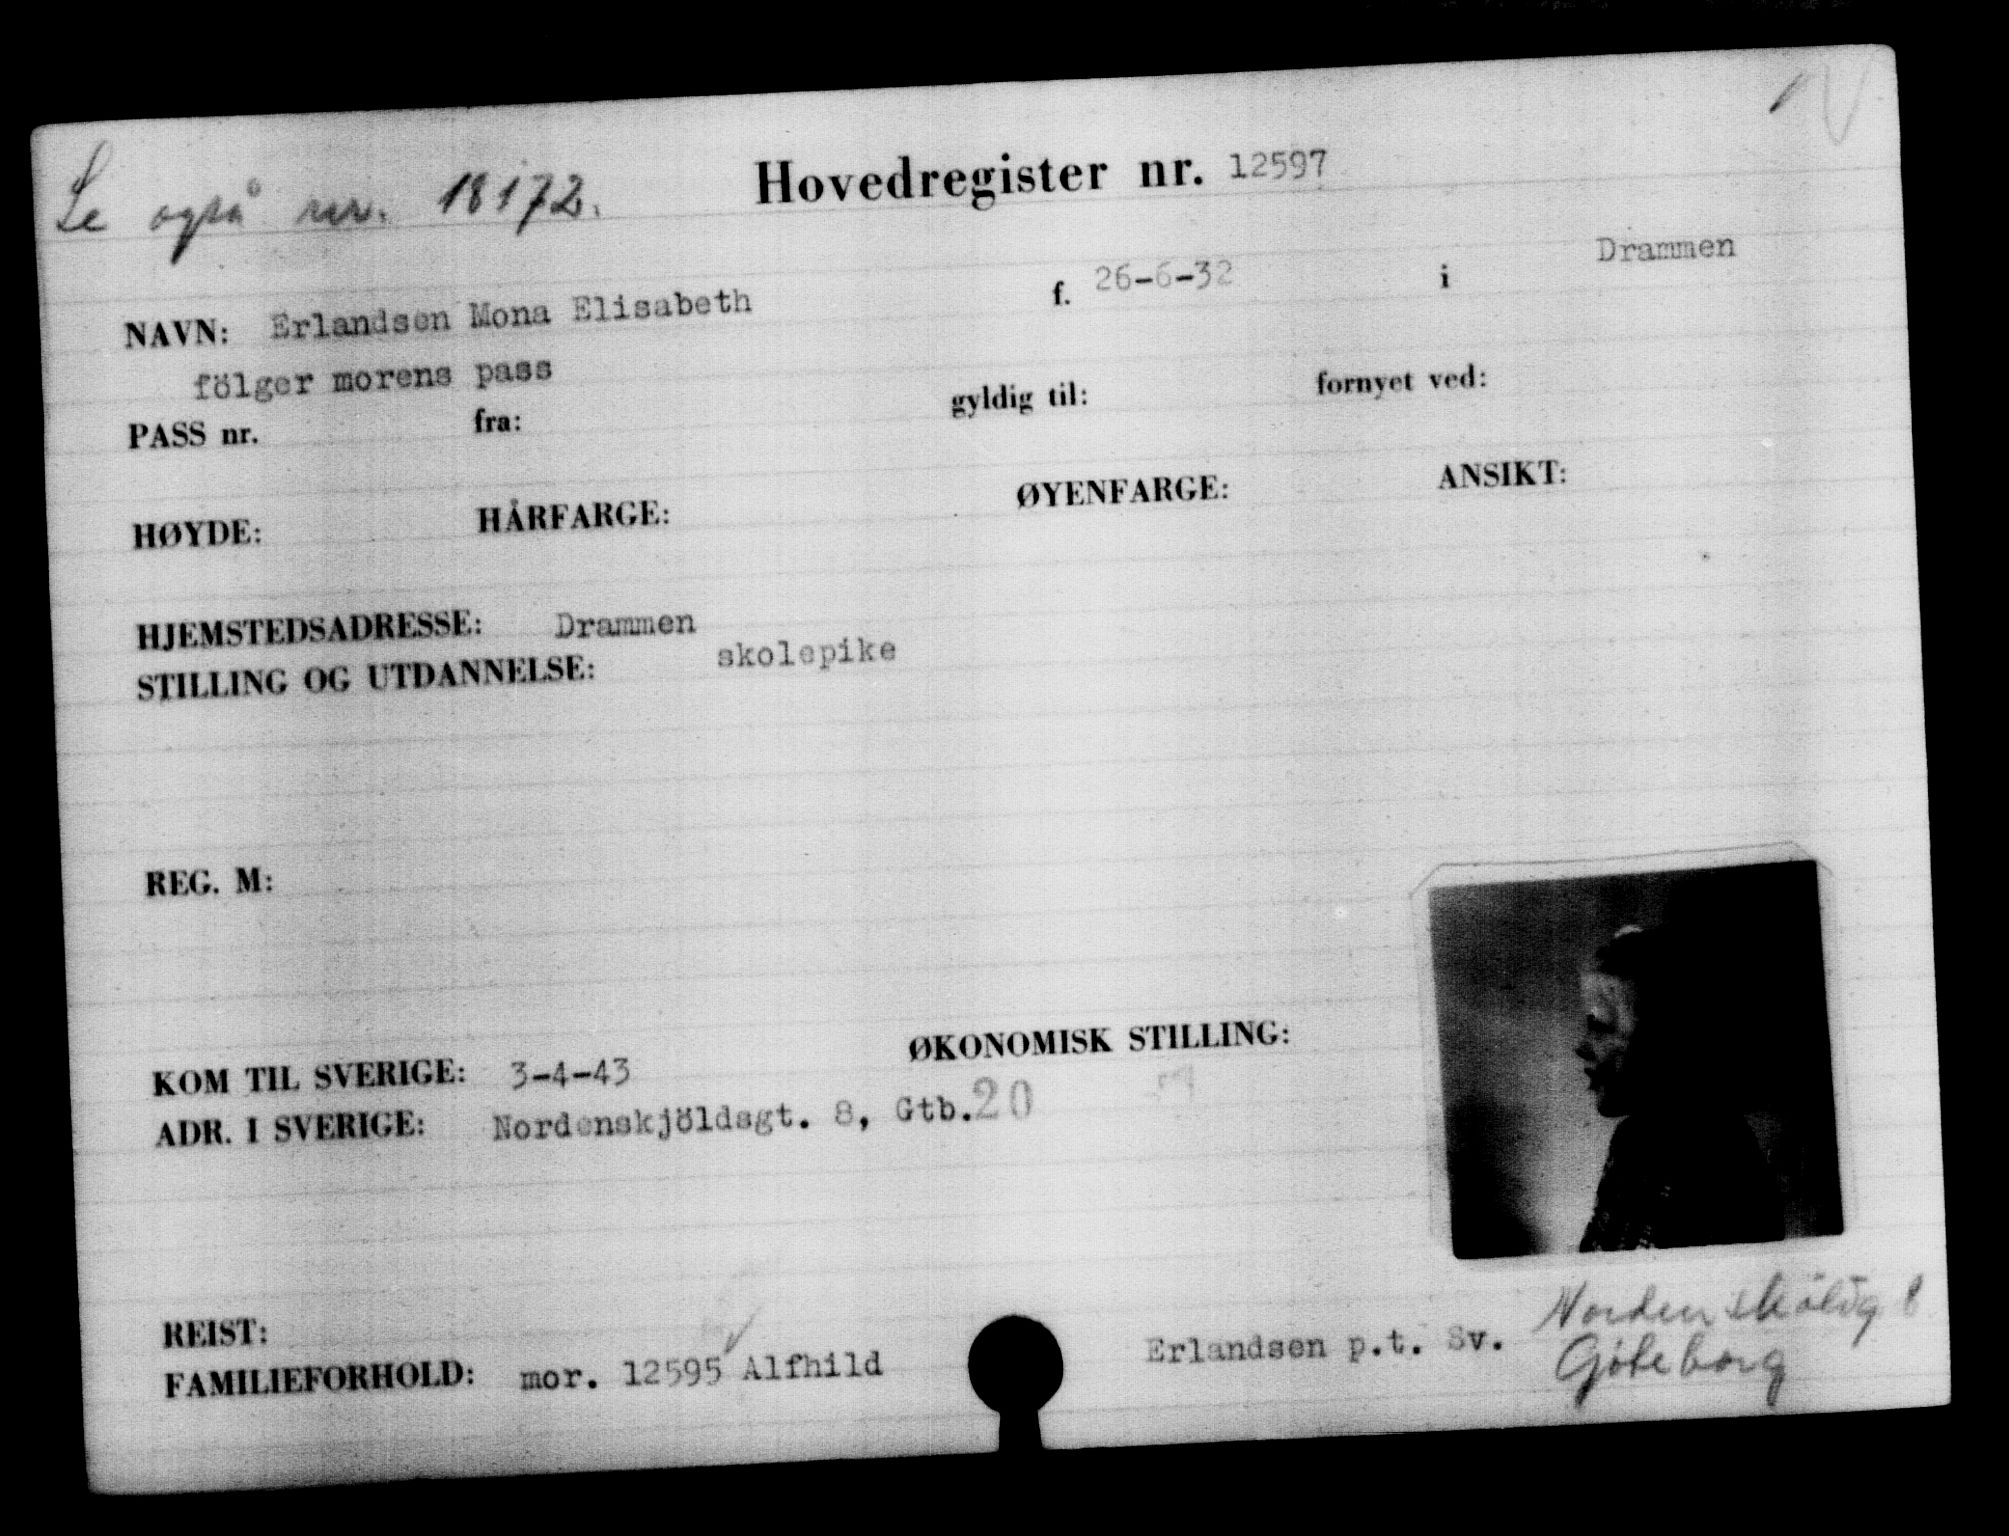 Se også nr. 18172.
Hovedregister nr. 12597
NAVN: Erlandsen Mona Elisabeth f. 26-6-32 i Drammen
fölger morens pass
PASS nr. fra: gyldig til: fornyet ved:
HØYDE: HÅRFARGE: ØYENFARGE: ANSIKT:
HJEMSTEDSADRESSE: Drammen
STILLING OG UTDANNELSE: skolepike
REG. M:
KOM TIL SVERIGE: 3-4-43 ØKONOMISK STILLING:
ADR. I SVERIGE: Nordenskjöldsgt. 8, Gtb. 20
REIST:
FAMILIEFORHOLD: mor. 12595 Alfhild Erlandsen p.t. Sv. Nordensköldg 8
Göteborg